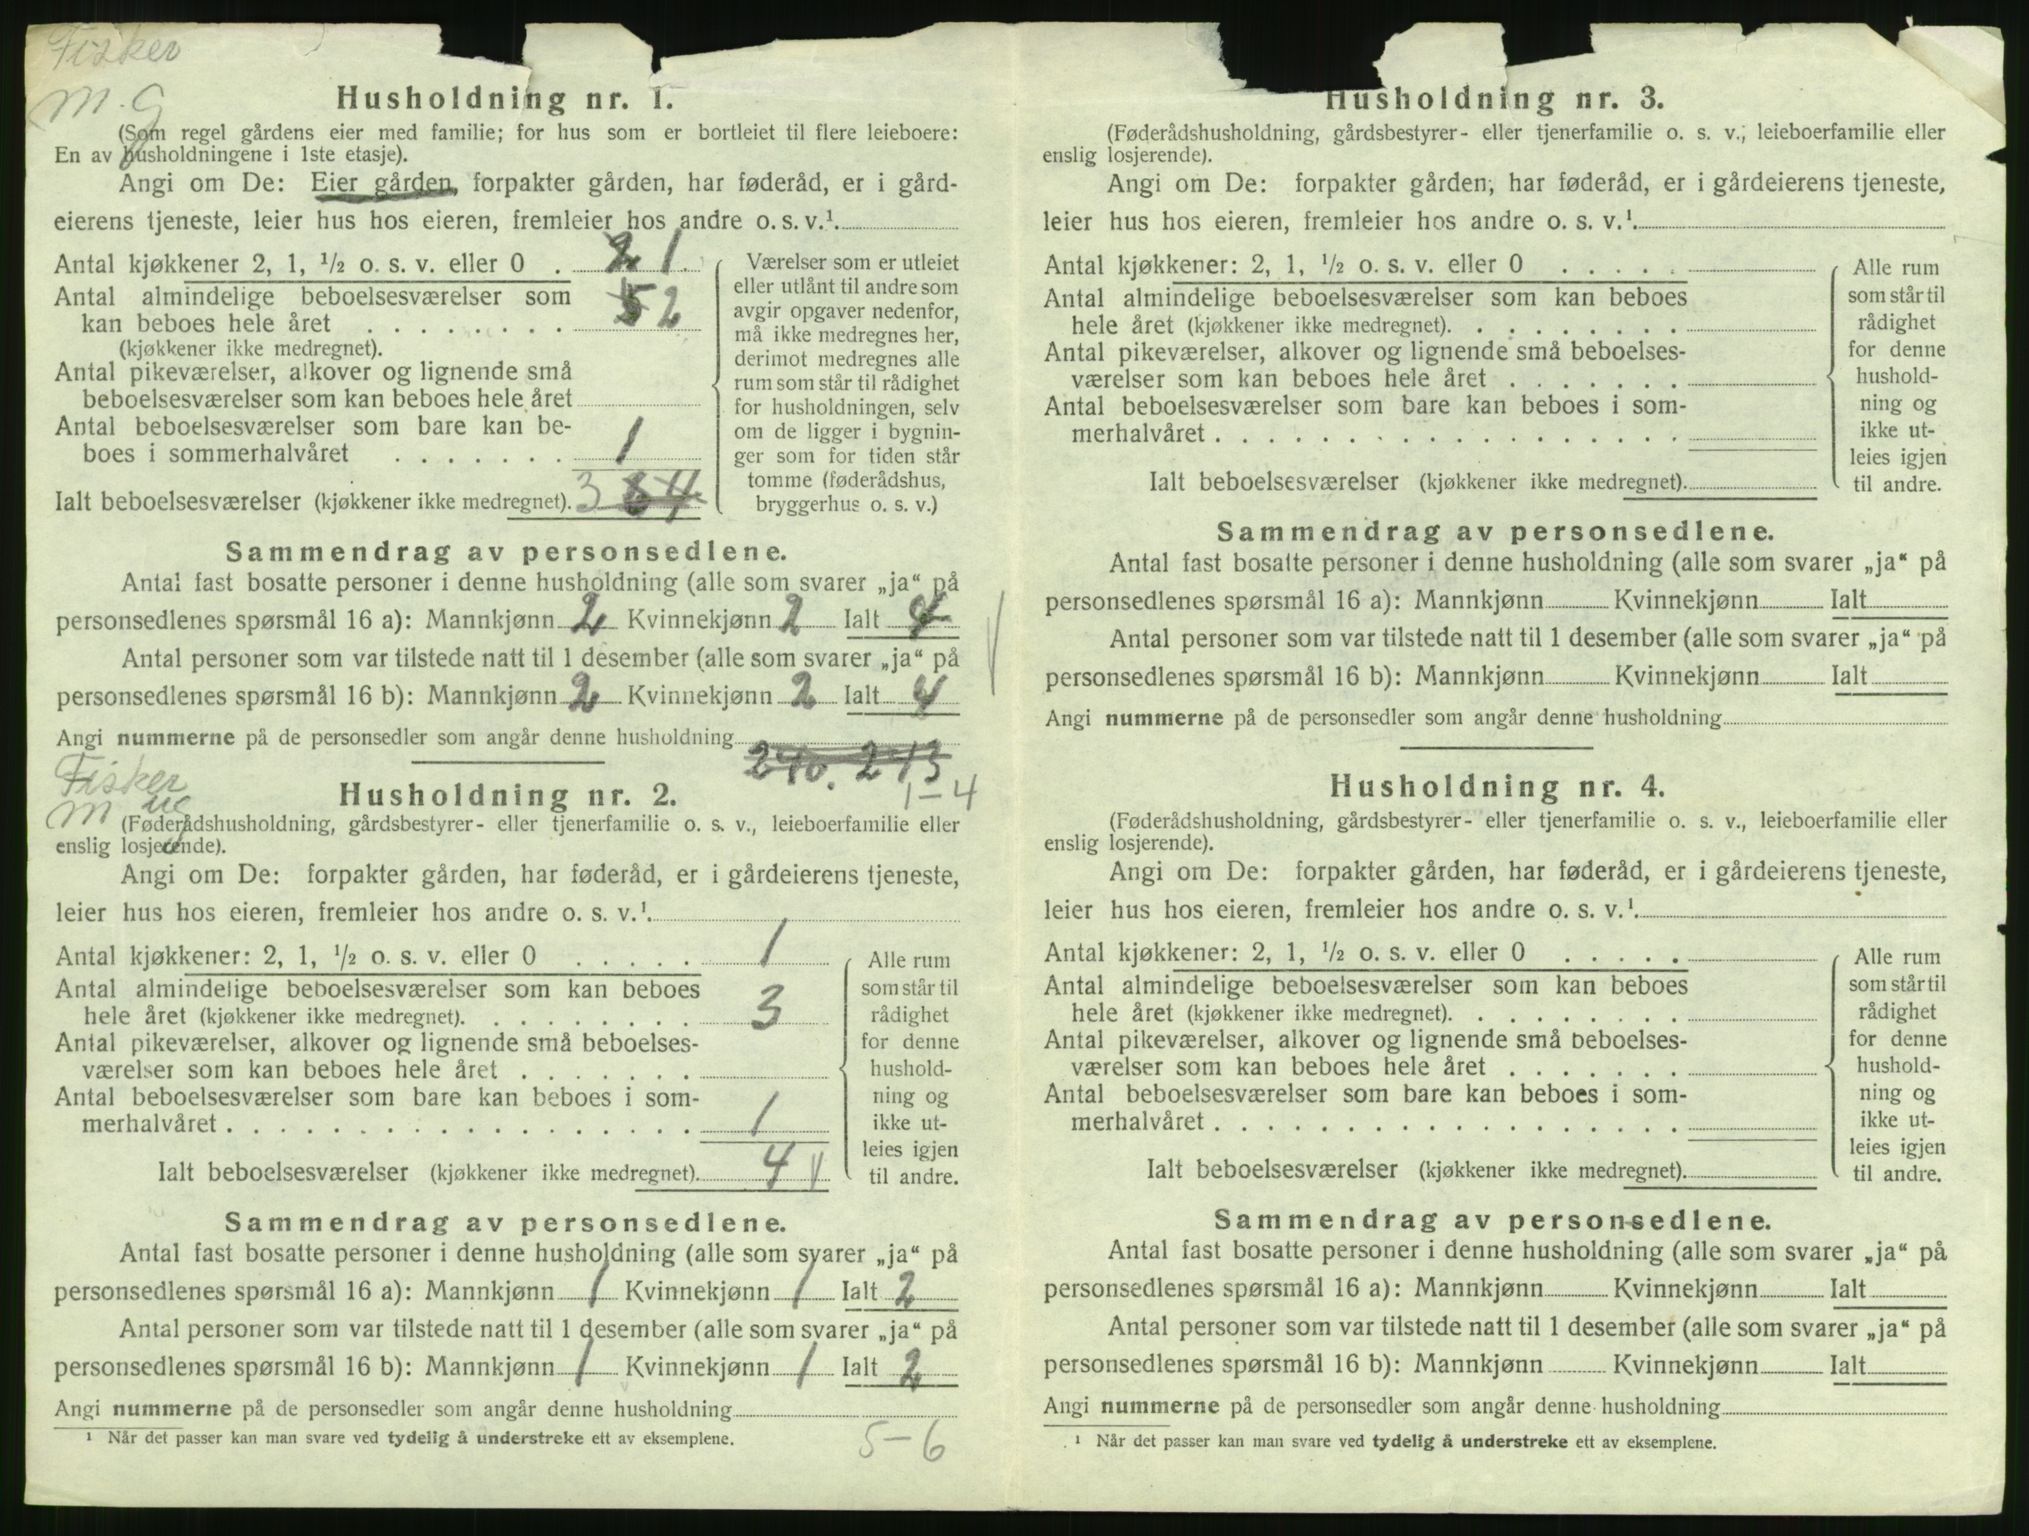 Fisker
M. G
Husholdning nr. 1.
(Som regel gårdens eier med familie; for hus som er bortleiet til flere leieboere:
En av husholdningene i 1ste etasje).
Angi om De: Eier gården, forpakter gården, har føderåd, er i gård-
eierens tjeneste, leier hus hos eieren, fremleier hos andre o. s. v.¹.
Antal kjøkkener 2, 1, ½ o. s. v. eller 0 . 2 1.
Antal almindelige beboelsesværelser som
kan beboes hele året . . . . . . . . 5 2
(kjøkkener ikke medregnet).
Antal pikeværelser, alkover og lignende små
beboelsesværelser som kan beboes hele året
Antal beboelsesværelser som bare kan be-
boes i sommerhalvåret . . . . . . . 1
Ialt beboelsesværelser (kjøkkener ikke medregnet). 3 4
Værelser som er utleiet
eller utlånt til andre som
avgir opgaver nedenfor,
må ikke medregnes her,
derimot medregnes alle
rum som står til rådighet
for husholdningen, selv
om de ligger i bygnin-
ger som for tiden står
tomme (føderådshus,
bryggerhus o. s. v.)
Sammendrag av personsedlene.
Antal fast bosatte personer i denne husholdning (alle som svarer „ja“ på
personsedlenes spørsmål 16 a): Mannkjønn 2 Kvinnekjønn 2 Ialt 4
Antal personer som var tilstede natt til 1 desember (alle som svarer „ja“ på
personsedlenes spørsmål 16 b): Mannkjønn 2 Kvinnekjønn 2 Ialt 4
Angi nummerne på de personsedler som angår denne husholdning
210. 213
1-4
Fisker
M ug
Husholdning nr. 2.
(Føderådshusholdning, gårdsbestyrer- eller tjenerfamilie o. s. v., leieboerfamilie eller
enslig losjerende).
Angi om De: forpakter gården, har føderåd, er i gårdeierens tjeneste,
leier hus hos eieren, fremleier hos andre o. s. v.¹.
Antal kjøkkener: 2, 1, ½ o. s. v. eller 0 . . . . . 1
Antal almindelige beboelsesværelser som kan beboes
hele året (kjøkkener ikke medregnet). . . . . . . . . 3
Antal pikeværelser, alkover og lignende små beboelses-
værelser som kan beboes hele året . . . . . . .
Antal beboelsesværelser som bare kan beboes i som-
merhalvåret . . . . . . . . . . . . . . . . . . 1
Ialt beboelsesværelser (kjøkkener ikke medregnet). 4
Alle rum
som står til
rådighet
for denne
hushold-
ning og
ikke ut-
leies igjen
til andre.
Sammendrag av personsedlene.
Antal fast bosatte personer i denne husholdning (alle som svarer „ja“ på
personsedlenes spørsmål 16 a): Mannkjønn 1 Kvinnekjønn 1 Ialt 2
Antal personer som var tilstede natt til 1 desember (alle som svarer „ja“ på
personsedlenes spørsmål 16 b): Mannkjønn 1 Kvinnekjønn 1 Ialt 2
Angi nummerne på de personsedler som angår denne husholdning
¹ Når det passer kan man svare ved tydelig å understreke ett av eksemplene.
5-6
Husholdning nr. 3.
(Føderådshusholdning, gårdsbestyrer- eller tjenerfamilie o. s. v., leieboerfamilie eller
enslig losjerende).
Angi om De: forpakter gården, har føderåd, er i gårdeierens tjeneste,
leier hus hos eieren, fremleier hos andre o. s. v.¹.
Antal kjøkkener: 2, 1, ½ o. s. v. eller 0 . . . . .
Antal almindelige beboelsesværelser som kan beboes
hele året (kjøkkener ikke medregnet). . . . . . . . .
Antal pikeværelser, alkover og lignende små beboelses-
værelser som kan beboes hele året . . . . . . .
Antal beboelsesværelser som bare kan beboes i som-
merhalvåret . . . . . . . . . . . . . . . . . .
Ialt beboelsesværelser (kjøkkener ikke medregnet).
Alle rum
som står til
rådighet
for denne
hushold-
ning og
ikke ut-
leies igjen
til andre.
Sammendrag av personsedlene.
Antal fast bosatte personer i denne husholdning (alle som svarer „ja“ på
personsedlenes spørsmål 16 a): Mannkjønn Kvinnekjønn Ialt
Antal personer som var tilstede natt til 1 desember (alle som svarer „ja“ på
personsedlenes spørsmål 16 b): Mannkjønn Kvinnekjønn Ialt
Angi nummerne på de personsedler som angår denne husholdning
Husholdning nr. 4.
(Føderådshusholdning, gårdsbestyrer- eller tjenerfamilie o. s. v., leieboerfamilie eller
enslig losjerende).
Angi om De: forpakter gården, har føderåd, er i gårdeierens tjeneste,
leier hus hos eieren, fremleier hos andre o. s. v.¹.
Antal kjøkkener: 2, 1, ½ o. s. v. eller 0 . . . . .
Antal almindelige beboelsesværelser som kan beboes
hele året (kjøkkener ikke medregnet). . . . . . . . .
Antal pikeværelser, alkover og lignende små beboelses-
værelser som kan beboes hele året . . . . . . .
Antal beboelsesværelser som bare kan beboes i som-
merhalvåret . . . . . . . . . . . . . . . . . .
Ialt beboelsesværelser (kjøkkener ikke medregnet).
Alle rum
som står til
rådighet
for denne
hushold-
ning og
ikke ut-
leies igjen
til andre.
Sammendrag av personsedlene.
Antal fast bosatte personer i denne husholdning (alle som svarer „ja“ på
personsedlenes spørsmål 16 a): Mannkjønn Kvinnekjønn Ialt
Antal personer som var tilstede natt til 1 desember (alle som svarer „ja“ på
personsedlenes spørsmål 16 b): Mannkjønn Kvinnekjønn Ialt
Angi nummerne på de personsedler som angår denne husholdning
¹ Når det passer kan man svare ved tydelig å understreke ett av eksemplene.